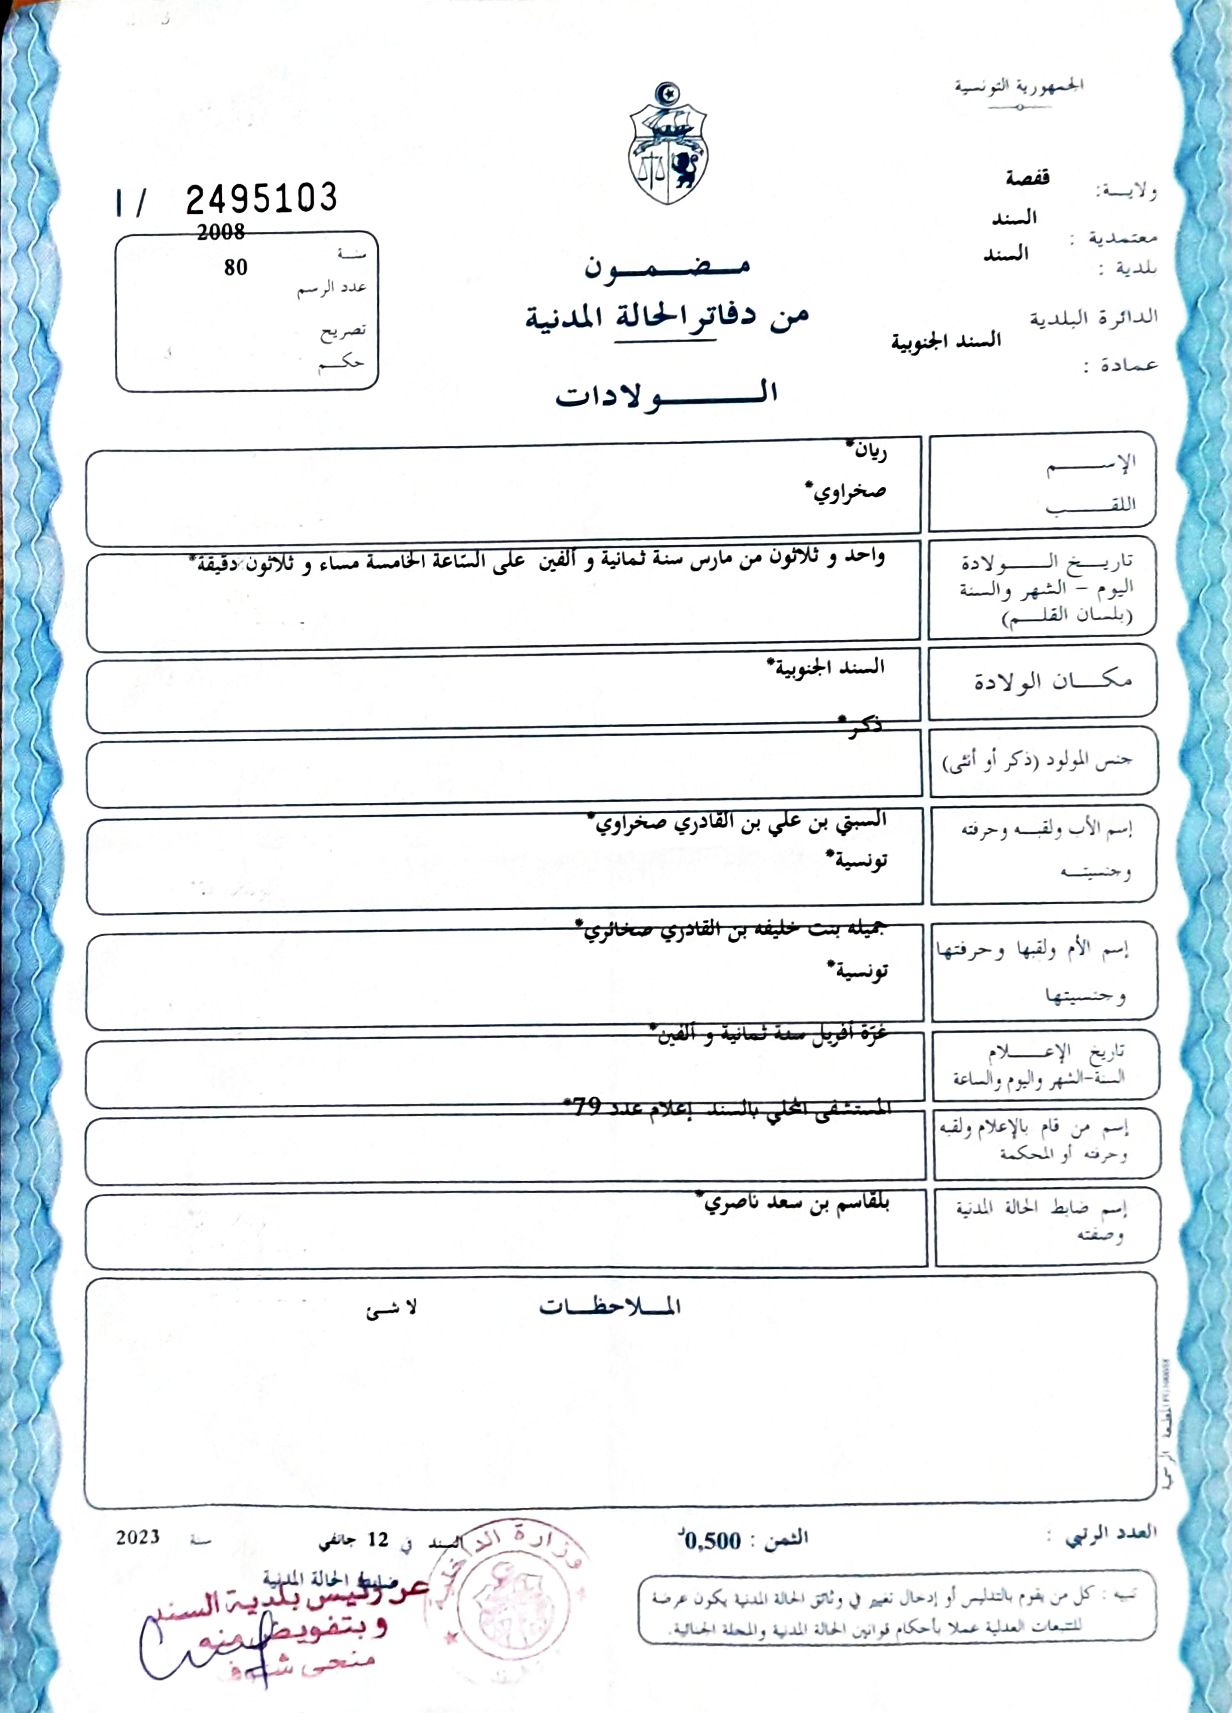 الجمهورية التونسية
ولايـــة: قفصة
معتمدية : السند
بلدية : السند
الدائرة البلدية
عمادة : السند الجنوبية
مـضـمـون
من دفاتر الحالة المدنية
الـــولادات
I / 2495103
سنة 2008
عدد الرسم 80
تصريح
حكم
الإســـم ريان*
اللقـــب صخراوي*
تاريـخ الـــولادة واحد و ثلاثون من مارس سنة ثمانية و ألفين على السّاعة الخامسة مساء و ثلاثون دقيقة*
اليوم - الشهر والسنة
(بلسان القلـم)
مكـــان الولادة السند الجنوبية*
جنس المولود (ذكر أو أنثى) ذكر*
إسم الأب ولقبـه وحرفته السبتي بن علي بن القادري صخراوي*
وجنسيتـه تونسية*
إسم الأم ولقبها وحرفتها جميله بنت خليفه بن القادري صخائري*
وجنسيتها تونسية*
تاريخ الإعـــلام غرّة أفريل سنة ثمانية و ألفين*
السنة-الشهر واليوم والساعة
إسم من قام بالإعلام ولقبه المستشفى المحلي بالسند إعلام عدد 79*
وحرفته أو المحكمة
إسم ضابط الحالة المدنية بلقاسم بن سعد ناصري*
وصفته
المـلاحظـات لا شئ
العدد الرتبي :
الثمن : 0,500 د
السند في 12 جانفي سنة 2023
ضابط الحالة المدنية
وزارة الداخلية
عن رئيس بلدية السند
و بتفويض منه
تنبيه : كل من يقوم بالتدليس أو إدخال تغيير في وثائق الحالة المدنية يكون عرضة
للتتبعات العدلية عملا بأحكام قوانين الحالة المدنية والمجلة الجنائية.
المطبعة الرسمية